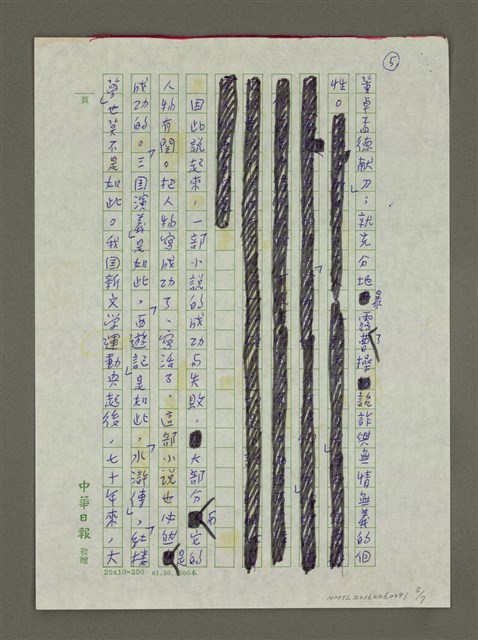 ⑤
董卓孟德献刀」;就充分地暴露了曹操詭詐與無情無義的個
性。
因此說起來,一部小說的成功与失敗,大部分与它的
人物有関。把人物寫成功了、寫活了。這部小說也必是
成功的。「三国演義」是如此,「西遊記」是如此,「水滸傳」,「紅樓
夢」也莫不是如此。我国新文学運動興起後,七十年來,大
頁
中華日報 敬贈
25x10=250 61.10.
NMTL20160260091 5/7